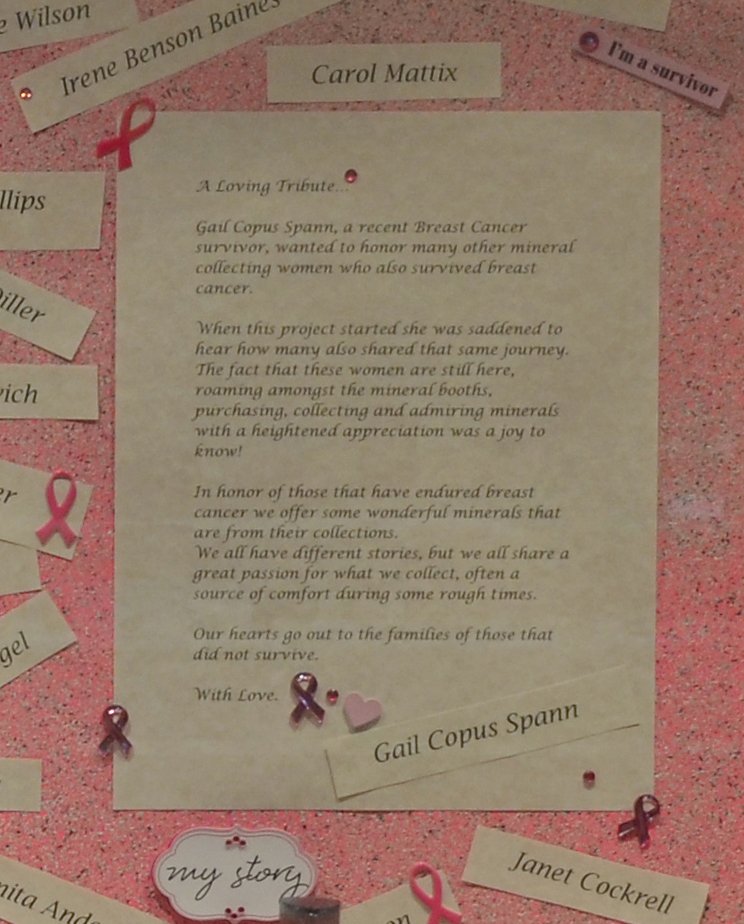 Wilson
Irene Benson Baines
Carol Mattix
I'm a survivor
A Loving Tribute...
Gail Copus Spann, a recent Breast Cancer
survivor, wanted to honor many other mineral
collecting women who also survived breast
cancer.
When this project started she was saddened to
hear how many also shared that same journey.
The fact that these women are still here,
roaming amongst the mineral booths,
purchasing, collecting and admiring minerals
with a heightened appreciation was a joy to
know!
In honor of those that have endured breast
cancer we offer some wonderful minerals that
are from their collections.
We all have different stories, but we all share a
great passion for what we collect, often a
source of comfort during some rough times.
Our hearts go out to the families of those that
did not survive.
With Love.
Gail Copus Spann
my story
Janet Cockrell